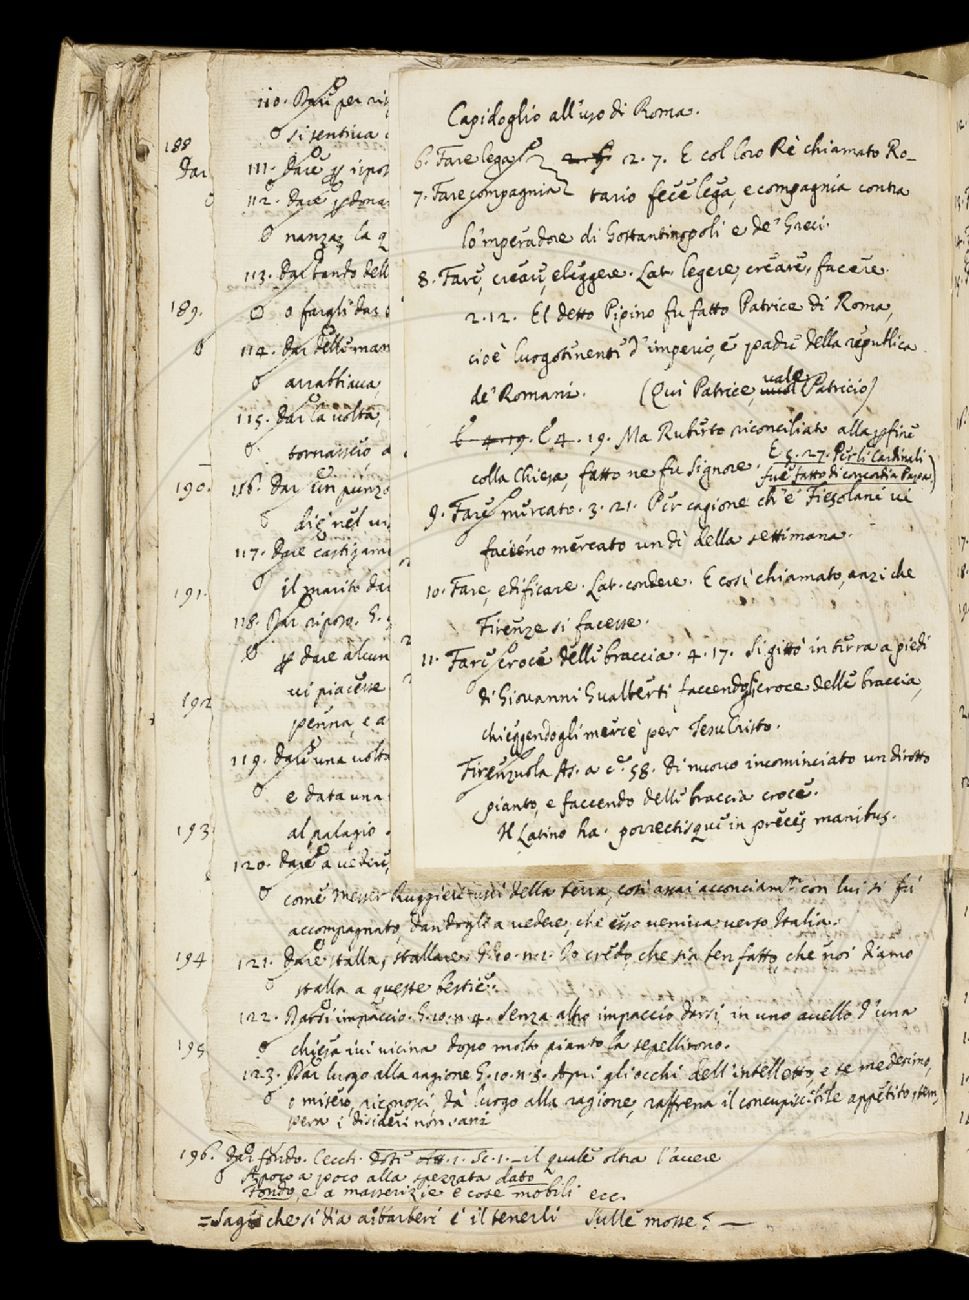 188
Dar
189.
190.
191.
192
193
194
195
196.
110. Dare per ris
si sentiva
111. Dare p ripos
112. Dare p dona
nanza, la q
113. Dar bando dell
o fargli dar
114. Dar delle man
arrabbiava,
115. Dar la volta,
tornassero a
116. Dar un punzo
die nel vi
117. Dare castigam
il marito da
118. Dar riposo. G.
p dare alcun
vi piacesse
penna, e a
119. Dare una volta
e data una
al palagio
120. Dare a vedere,
Capidoglio all'uso di Roma.
6. Fare lega
7. Fare compagnia
2. 7. E col loro Rè chiamato Ro-
tario fece lega, e compagnia contra
lo 'mperadore di Gostantinopoli e de' Greci.
8. Fare, creare, eleggere. Lat. legere, creare, facere.
2. 12. El detto Pipino fu fatto Patrice di Roma,
cioè luogotenente d'imperio, e padre della republica
de' Romani. (Qui Patrice, vale Patricio)
E 4. 19. E 4. 19. Ma Ruberto riconciliato alla pfine
colla Chiesa, fatto ne fu Signore. E 5. 27. Per li Cardinali
fue fatto di concordia Papa.)
9. Fare mercato. 3. 21. Per cagione ch'e' Fiesolani vi
facieno mercato un dì della settimana.
10. Fare, edificare. Lat. condere. E così chiamato, anzi che
Firenze si facesse.
11. Fare croce delle braccia. 4. 17. Si gittò in terra a piedi
di Giovanni Gualberti, faccendogli croce delle braccia,
chieggendogli mercè per Iesu Cristo.
Firenzuola As. a c. 58. di nuovo incominciato un dirotto
pianto, e faccendo delle braccia croce.
Il Latino ha. porrectisque in preces manibus.
come Messer Ruggieri uscì della terra, così assai acconciam.te con lui si fu
accompagnato, dandogli a vedere, che esso veniva verso Italia.
121. Dare stalla, stallare. G. 10. n. 2. Io credo, che sia ben fatto, che noi diamo
stalla a queste bestie.
122. Darsi impaccio. G. 10. n. 4. Senza altro impaccio darsi, in uno avello d'una
chiesa ivi vicina dopo molto pianto la sepellirono.
123. Dar luogo alla ragione G. 10. n. 8. Apri gli occhi dell'intelletto, e te medesimo,
o misero, riconosci, dà luogo alla ragione, raffrena il concupiscibile appetito, tem
pera i disideri non sani
Dar fondo. Cecch. Dote att. 1. Sc. 1. – il quale oltra l'avere
A poco a poco alla spezzata dato
Fondo, e a masserizie e cose mobili ecc.
= Sagù che si dia a' barberi è il tenerli sulle mosse? –